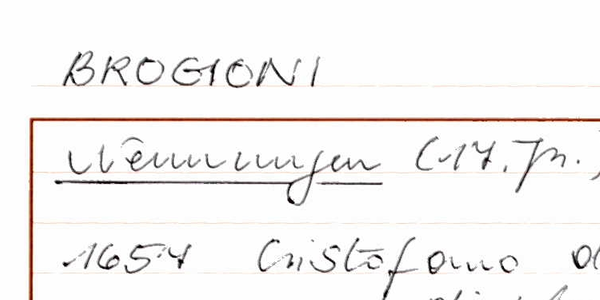 BROGIONI
Nennungen (17. Jh.)
1657 Cristofano